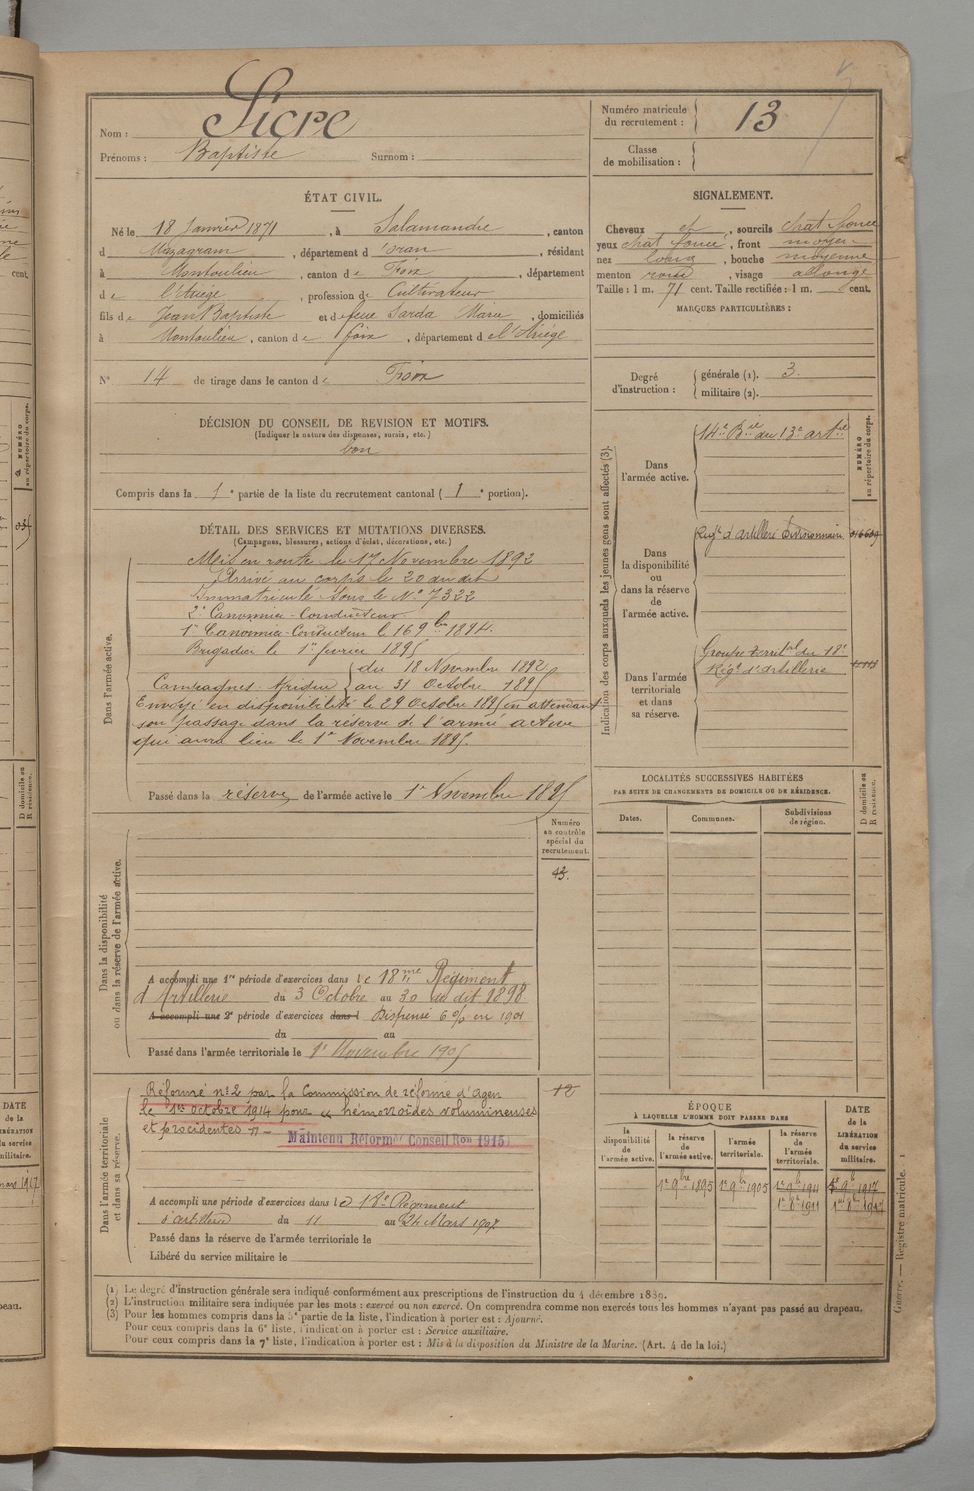 Nom : Sicre
Prénoms : Baptiste Surnom :
Numéro matricule du recrutement : 13
Classe de mobilisation :
ÉTAT CIVIL.
Né le 18 Janvier 1871, à Salamandre, canton
d Mazagram, département d'Oran, résidant
à Montoulieu, canton de Foix, département
de l'Ariège, profession de Cultivateur
fils de Jean Baptiste et de feue Sarda Marie, domiciliés
à Montoulieu, canton de Foix, département de l'Ariège
N° 14 de tirage dans le canton de Foix
SIGNALEMENT.
Cheveux et, sourcils chat foncé
yeux chat foncé, front moyen
nez long, bouche moyenne
menton rond, visage allongé
Taille : 1 m. 71 cent. Taille rectifiée : 1 m. cent.
MARQUES PARTICULIÈRES :
Degré d'instruction : générale (1). 3.
militaire (2).
DÉCISION DU CONSEIL DE REVISION ET MOTIFS.
(Indiquer la nature des dispenses, sursis, etc.)
bon
Compris dans la 1e partie de la liste du recrutement cantonal (1e portion).
DÉTAIL DES SERVICES ET MUTATIONS DIVERSES.
(Campagnes, blessures, actions d'éclat, décorations, etc.)
Dans l'armée active.
Mis en route le 17 Novembre 1892
Arrivé au corps le 20 du dit
Immatriculé sous le N° 7322
2e Canonnier-Conducteur
1er Canonnier-Conducteur le 16 9bre 1894.
Brigadier le 1er février 1895
Campagnes. Afrique du 18 Novembre 1892
au 31 Octobre 1895
Envoyé en disponibilité le 29 Octobre 1895 en attendant
son passage dans la réserve de l'armée active
qui aura lieu le 1er Novembre 1895.
Passé dans la réserve de l'armée active le 1er Novembre 1895
Indication des corps auxquels les jeunes gens sont affectés (3).
NUMÉRO au répertoire du corps.
Dans l'armée active.
14e Bie du 13e artie
Dans la disponibilité ou dans la réserve de l'armée active.
Regt d'artillerie Divisionnaire
Dans l'armée territoriale et dans sa réserve.
Groupe territal du 18e
Régt d'artillerie
LOCALITÉS SUCCESSIVES HABITÉES
PAR SUITE DE CHANGEMENTS DE DOMICILE OU DE RÉSIDENCE.
Dates. Communes. Subdivisions de région. D domicile ou R résidence.
Dans la disponibilité ou dans la réserve de l'armée active.
Numéro au contrôle spécial du recrutement.
13.
A accompli une 1re période d'exercices dans le 18me Régiment
d'Artillerie du 3 Octobre au 30 du dit 1898
A accompli une 2e période d'exercices dans l Dispensé 6 o/o en 1901
du au
Passé dans l'armée territoriale le 1er Novembre 1905
Dans l'armée territoriale et dans sa réserve.
Réformé n° 2 par la Commission de réforme d'Agen
le 1er octobre 1914 pour « hémorroïdes volumineuses
et procidentes » -
Maintenu Réformé Conseil Ron 1915
12
A accompli une période d'exercices dans le 18e Régiment
d'artillerie du 11 au 24 Mars 1907
Passé dans la réserve de l'armée territoriale le
Libéré du service militaire le
ÉPOQUE
À LAQUELLE L'HOMME DOIT PASSER DANS
la disponibilité de l'armée active.
la réserve de l'armée active.
l'armée territoriale.
la réserve de l'armée territoriale.
DATE de la LIBÉRATION du service militaire.
1er 9bre 1895 1er 9bre 1905 1er 9bre 1911 1er 9bre 1917
1er 8bre 1911 1er 8bre 1917
(1) Le degré d'instruction générale sera indiqué conformément aux prescriptions de l'instruction du 4 décembre 1889.
(2) L'instruction militaire sera indiquée par les mots : exercé ou non exercé. On comprendra comme non exercés tous les hommes n'ayant pas passé au drapeau.
(3) Pour les hommes compris dans la 5e partie de la liste, l'indication à porter est : Ajourné.
Pour ceux compris dans la 6e liste, l'indication à porter est : Service auxiliaire.
Pour ceux compris dans la 7e liste, l'indication à porter est : Mis à la disposition du Ministre de la Marine. (Art. 4 de la loi.)
Guerre. — Registre matricule.